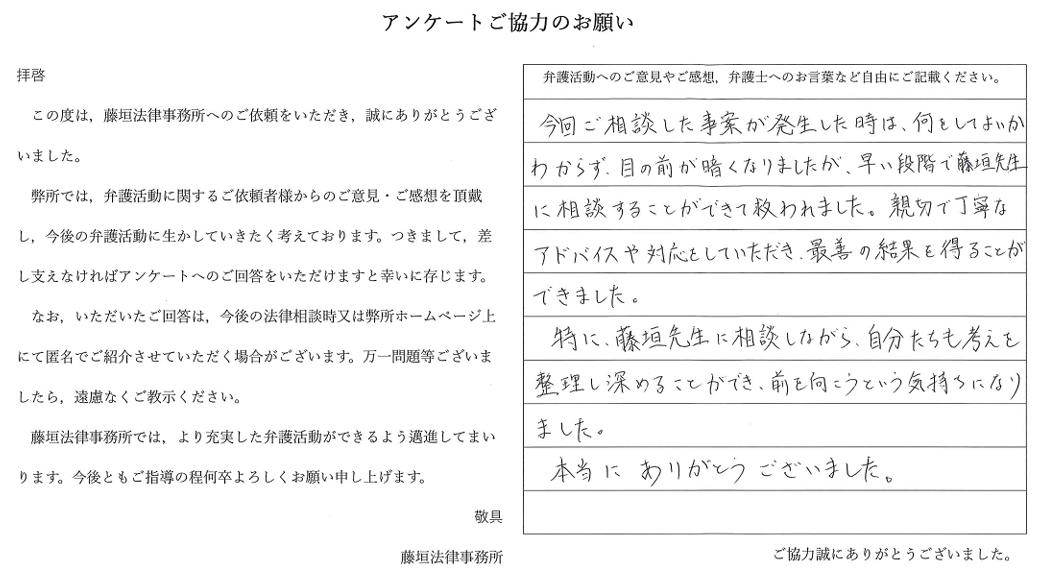 アンケートご協力のお願い
拝啓
この度は，藤垣法律事務所へのご依頼をいただき，誠にありがとうござ
いました。
弊所では，弁護活動に関するご依頼者様からのご意見・ご感想を頂戴
し，今後の弁護活動に生かしていきたく考えております。つきまして，差
し支えなければアンケートへのご回答をいただけますと幸いに存じます。
なお，いただいたご回答は，今後の法律相談時又は弊所ホームページ上
にて匿名でご紹介させていただく場合がございます。万一問題等ございま
したら，遠慮なくご教示ください。
藤垣法律事務所では，より充実した弁護活動ができるよう邁進してまい
ります。今後ともご指導の程何卒よろしくお願い申し上げます。
敬具
藤垣法律事務所
弁護活動へのご意見やご感想，弁護士へのお言葉など自由にご記載ください。
今回ご相談した事案が発生した時は、何をしてよいか
わからず、目の前が暗くなりましたが、早い段階で藤垣先生
に相談することができて救われました。親切で丁寧な
アドバイスや対応をしていただき、最善の結果を得ることが
できました。
特に、藤垣先生に相談しながら、自分たちも考えを
整理し深めることができ、前を向こうという気持ちになり
ました。
本当に ありがとうございました。
ご協力誠にありがとうございました。